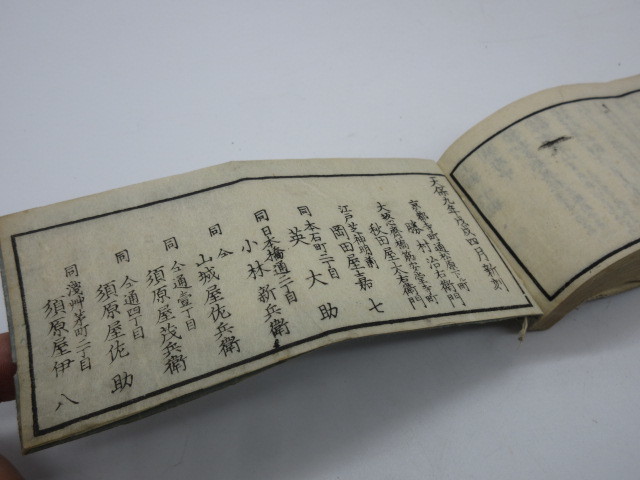 天保九年戊戌四月新刻
京都寺町通松原下ル町
勝村治右衛門
大坂心斎橋筋安堂寺町
秋田屋太右衛門
江戸芝神明前
岡田屋嘉七
同本石町二目
英大助
同日本橋通二目
小林新兵衛
同仝
山城屋佐兵衛
同仝通壹丁目
須原屋茂兵衛
同仝通四丁目
須原屋佐助
同淺艸茅町二丁目
須原屋伊八